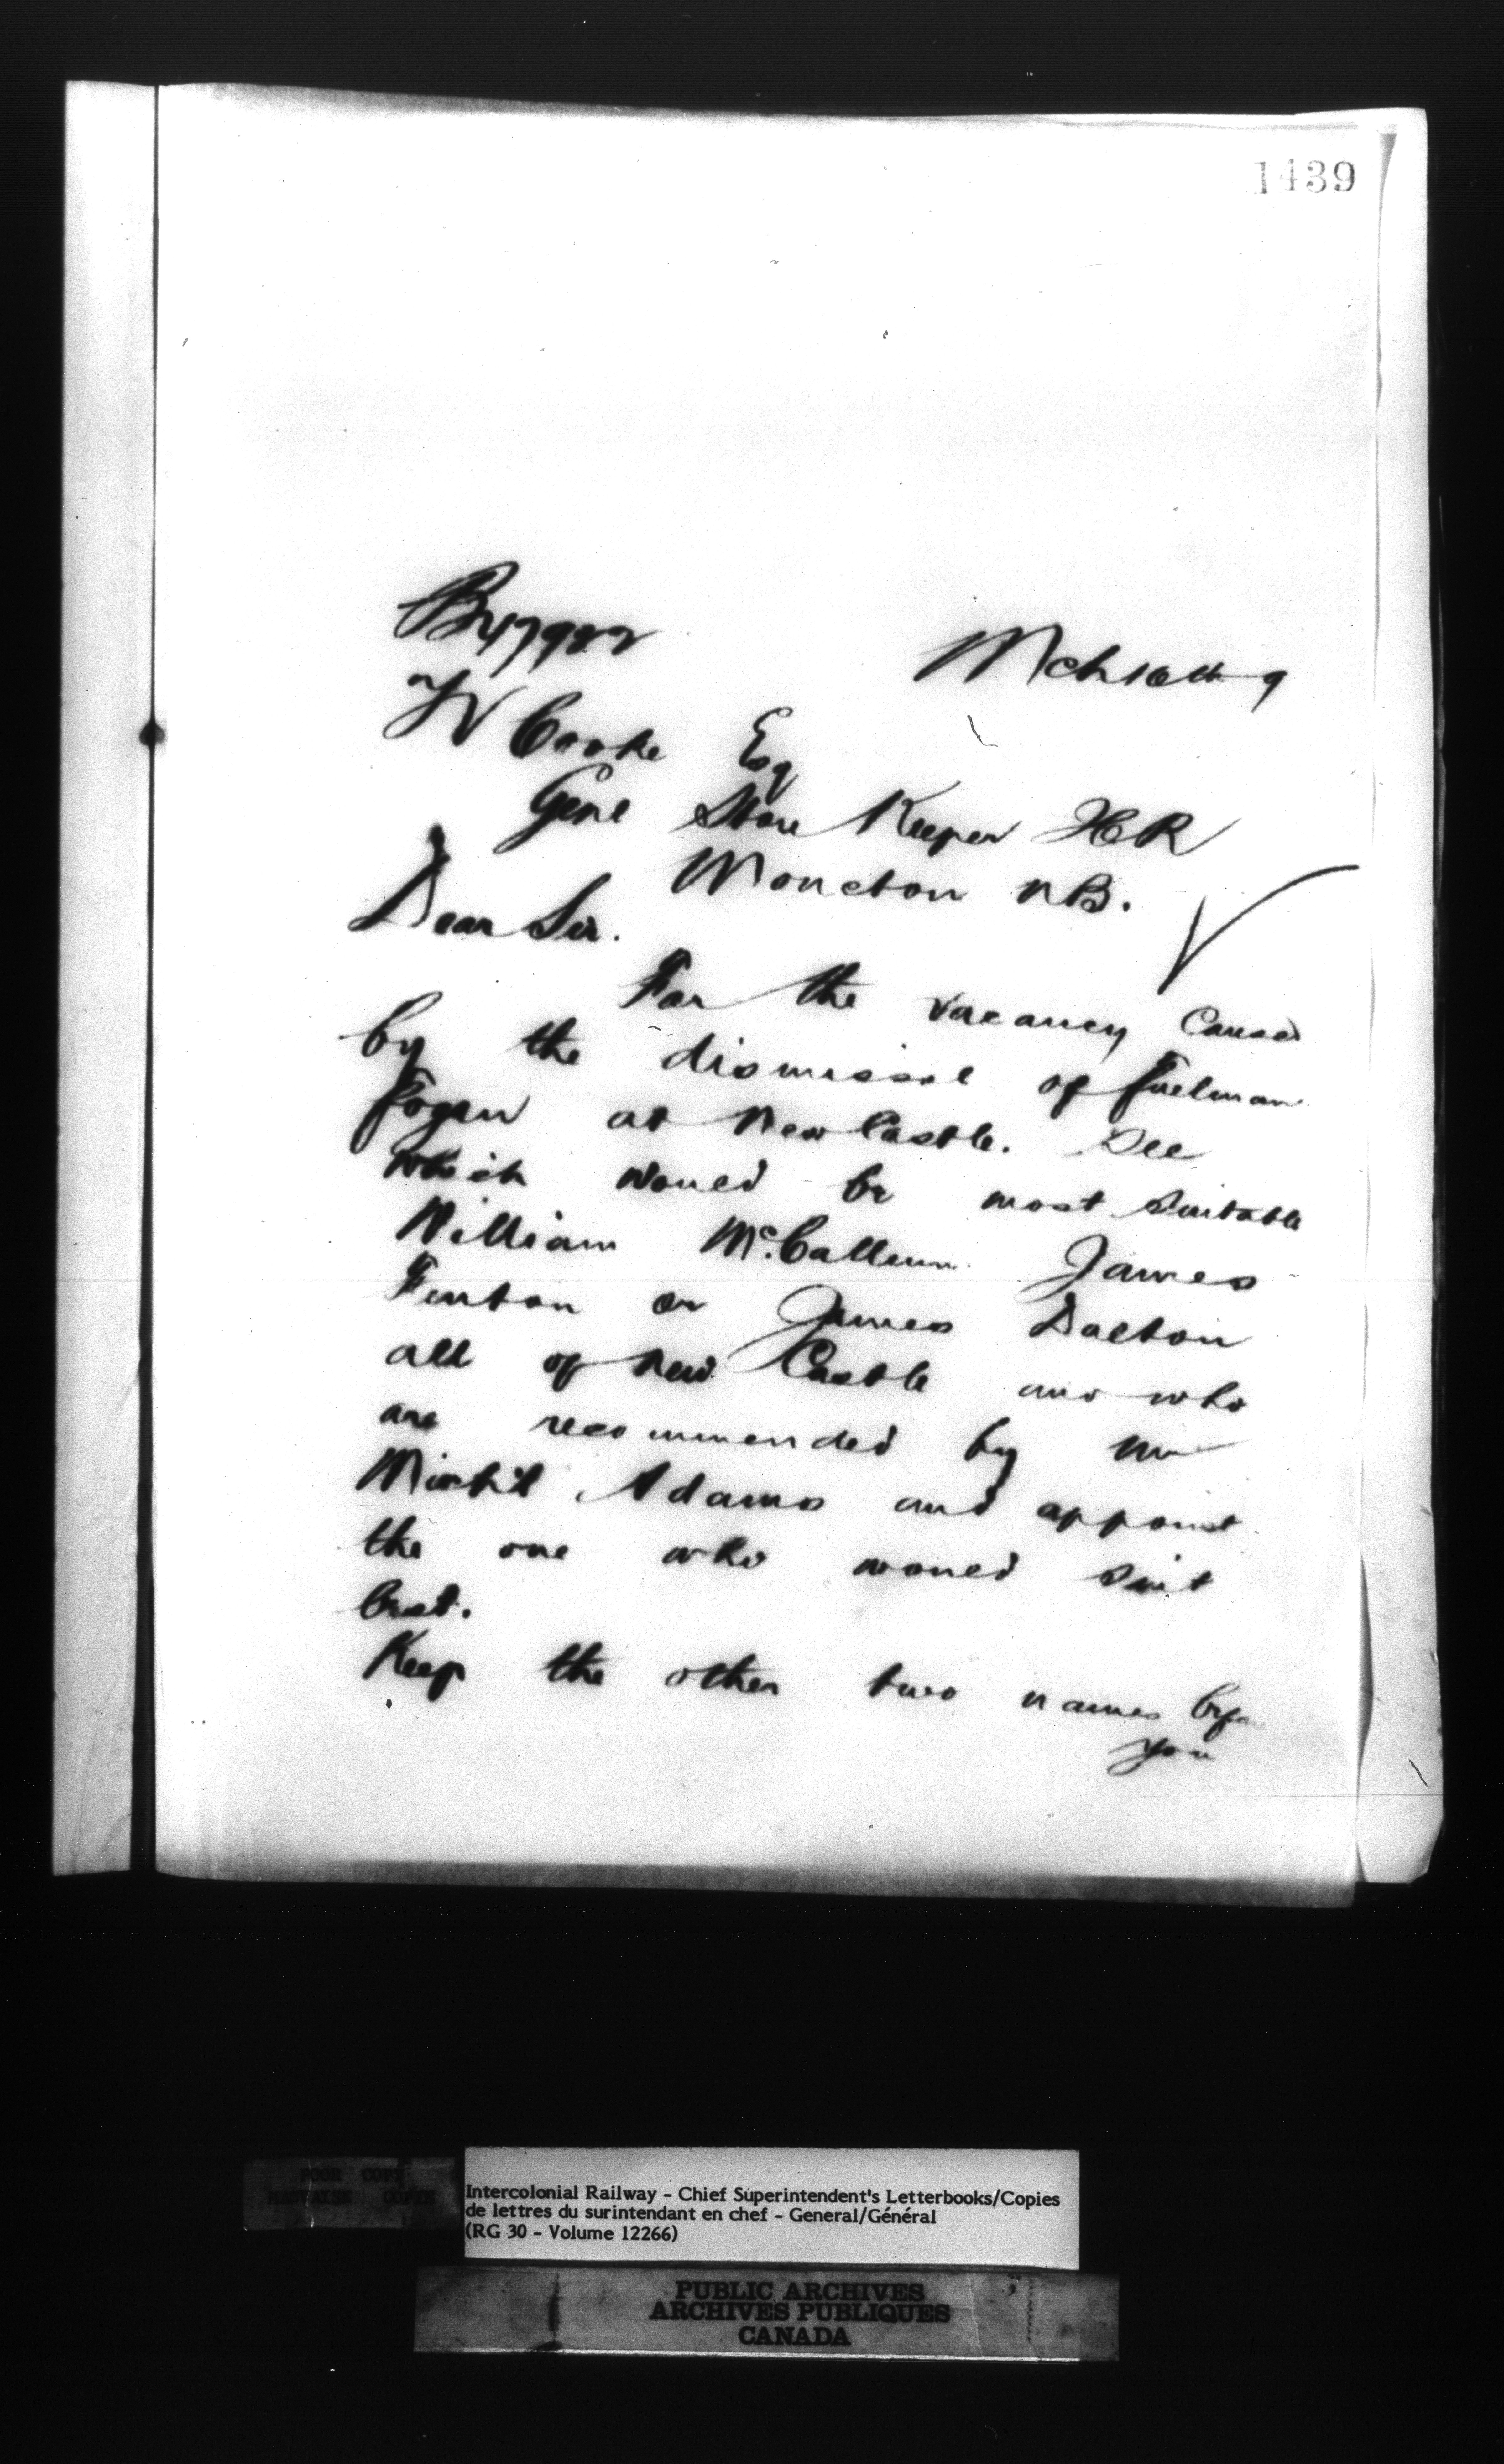 1439
B47982
Mch 10th 9
TV Cooke Esq
Genl Store Keeper ICR
Moncton NB.
Dear Sir.
For the vacancy caused
by the dismissal of fuelman
Fogen at New Castle. See
which would be most suitable
William McCallum James
Fenton or James Dalton
all of New Castle and who
are recommended by Mr
Michl Adams and appoint
the one who would suit
best.
Keep the other two names before
you
POOR COPY
MAUVAISE COPIE
Intercolonial Railway - Chief Superintendent's Letterbooks/Copies
de lettres du surintendant en chef - General/Général
(RG 30 - Volume 12266)
PUBLIC ARCHIVES
ARCHIVES PUBLIQUES
CANADA